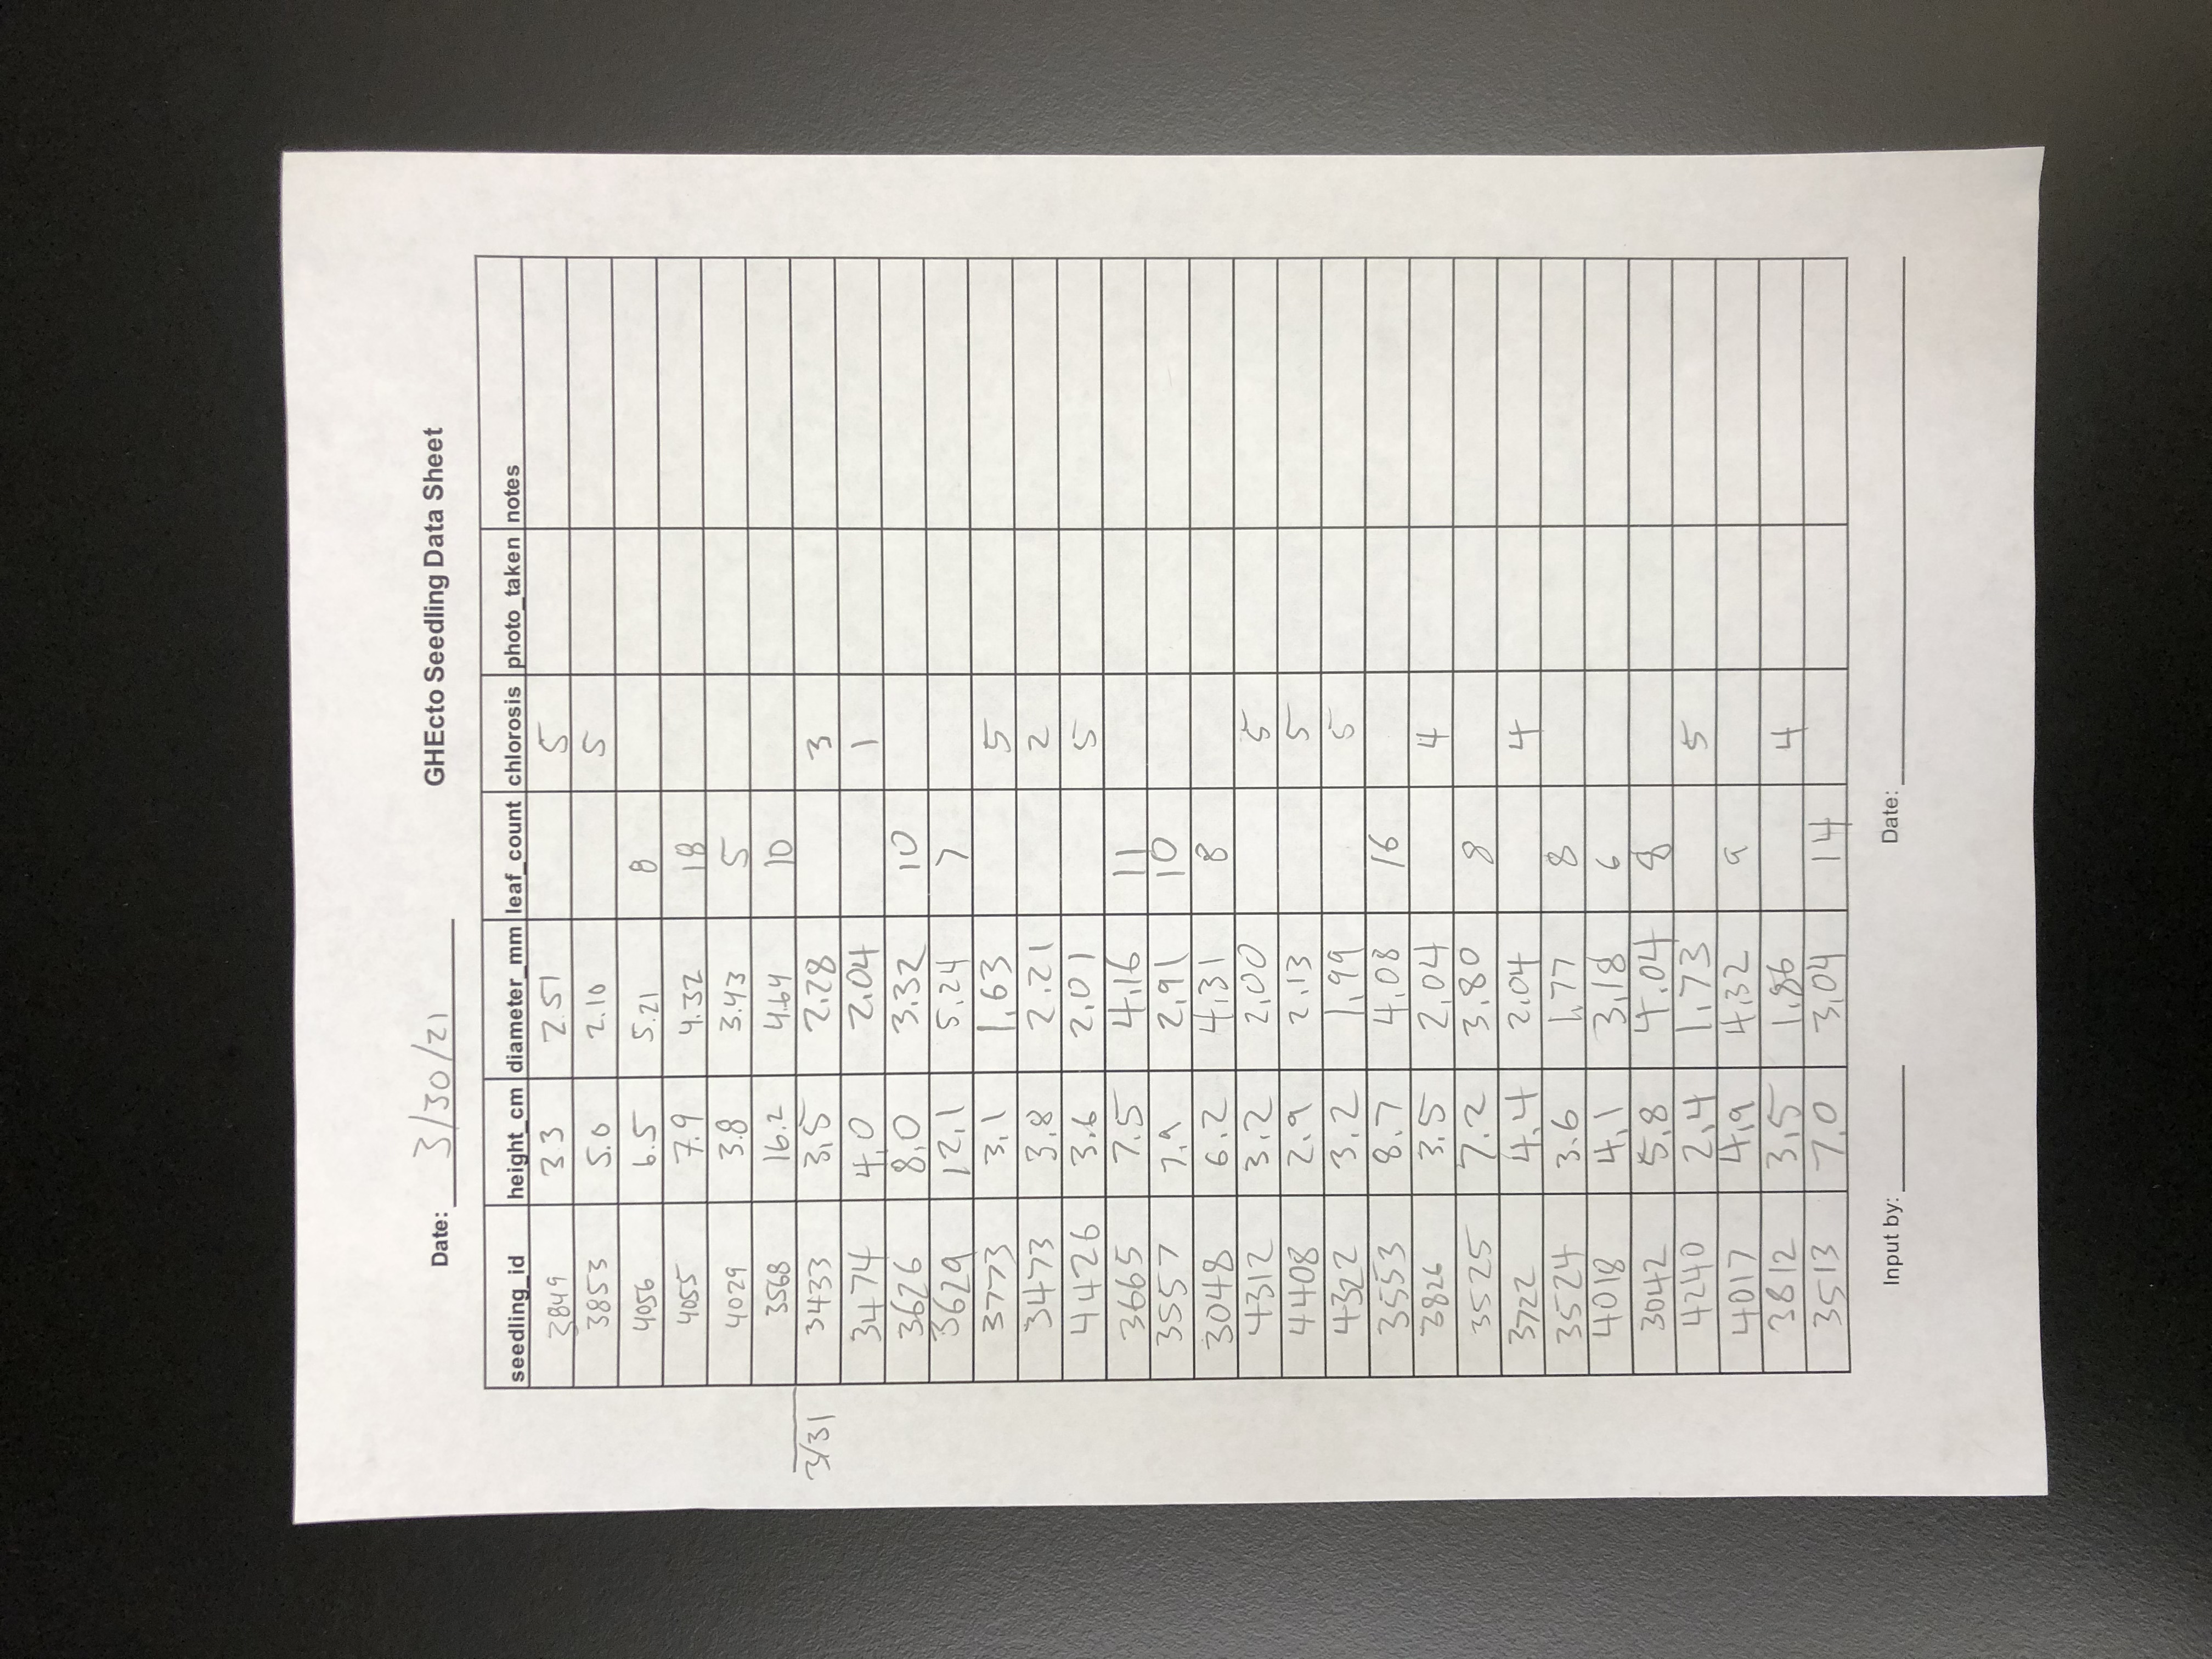 Date: 3/30/21 GHEcto Seedling Data Sheet
seedling_id height_cm diameter_mm leaf_count chlorosis photo_taken notes
3849 3.3 2.51 5
3853 5.0 2.10 5
4056 6.5 5.21 8
4055 7.9 4.32 18
4029 3.8 3.43 5
3568 16.2 4.64 10
3/31 3433 3.5 2.28 3
3474 4.0 2.04 1
3626 8.0 3.32 10
3629 12.1 5.24 7
3773 3.1 1.63 5
3473 3.8 2.21 2
4426 3.6 2.01 5
3665 7.5 4.16 11
3557 7.9 2.91 10
3048 6.2 4.31 8
4312 3.2 2.00 5
4408 2.9 2.13 5
4322 3.2 1.99 5
3553 8.7 4.08 16
3826 3.5 2.04 4
3525 7.2 3.80 8
3722 4.4 2.04 4
3524 3.6 1.77 8
4018 4.1 3.18 6
3042 5.8 4.04 8
4240 2.4 1.73 5
4017 4.9 4.32 9
3812 3.5 1.86 4
3513 7.0 3.04 14
Input by: Date: